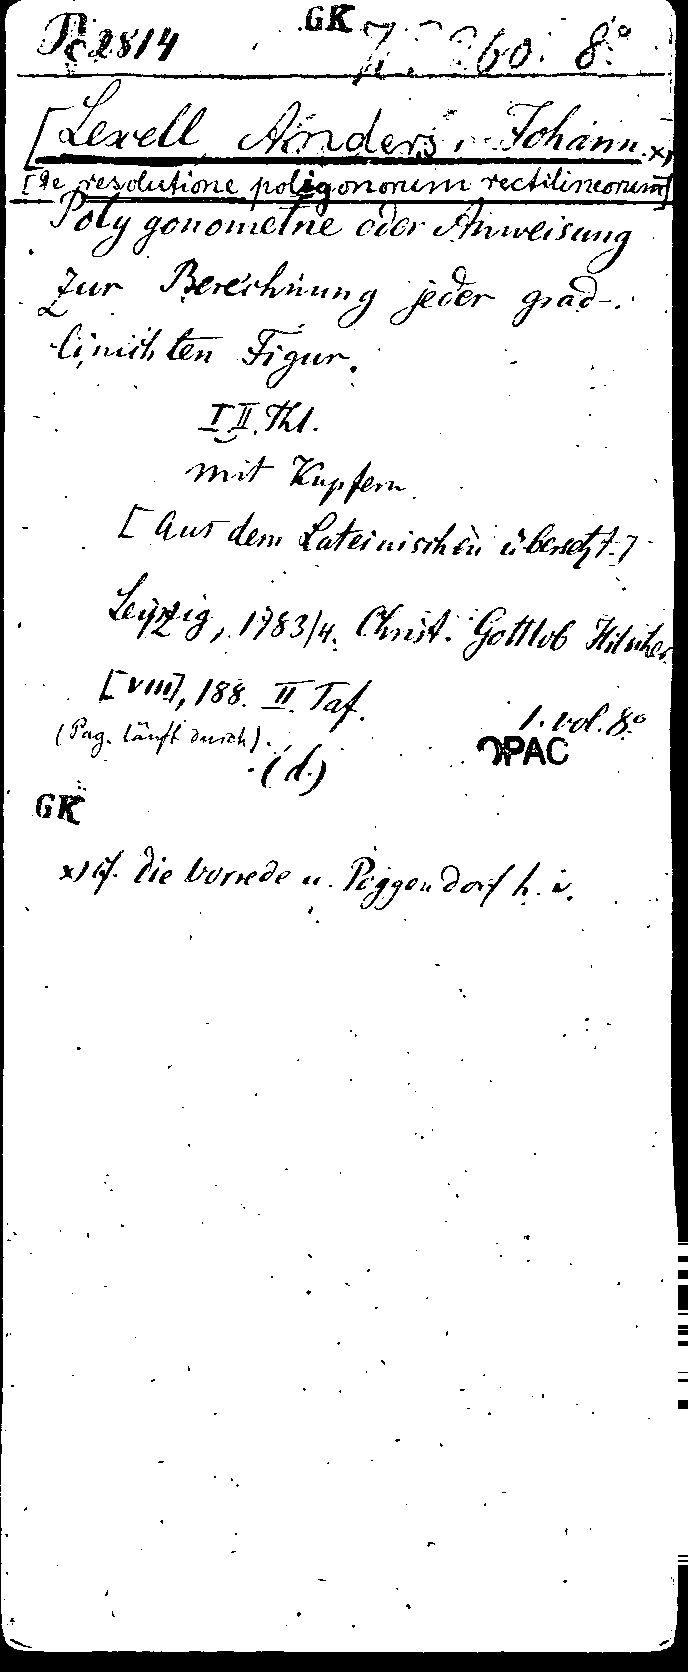 GK
Pc 2814 60. 8°
[Lexell, Anders Johann x)
[De resolutione poligonorum rectilineorum]
Polygonometrie oder Anweisung
zur Berechnung jeder grad-
linichten Figur.
I II. Thl.
mit Kupfern.
[Aus dem Lateinischen übersetzt.]
Leipzig, 1783/4. Christ. Gottlob Hilscher.
[VIII], 188. II. Taf.
1. vol. 8°
(Pag. läuft durch).
OPAC
(d.)
GK
x) cf. die Vorrede u. Poggendorf h. v.